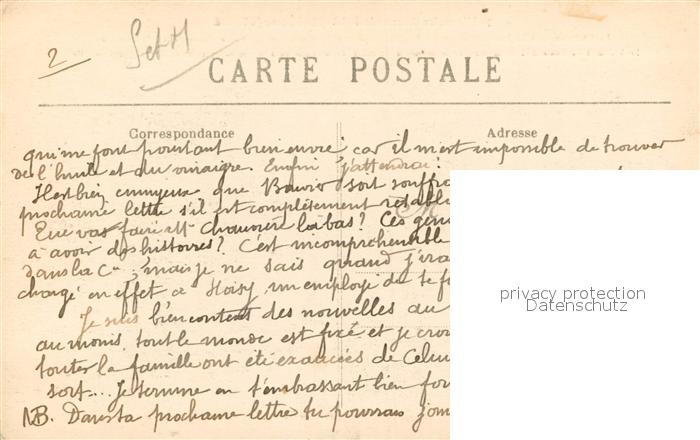 2
CARTE POSTALE
Correspondance
Adresse
qui me font pourtant bien envie car il m'est impossible de trouver
de l'huile et du vinaigre. Enfin j'attendrai.
Il est bien ennuyeux que Bouvier soit souffra
prochaine lettre s'il est complètement rétabli
Que vas faire chaumin là bas? Ces gens
à avoir des histoires? C'est incompréhensible
dans la Cie, mais je ne sais quand j'irai
changé en effet à Noisy un employé de
Je suis bien content des nouvelles au
au moins tout le monde est fixé et je crois
toutes la famille ont été exaucées de Celui
sort... Je termine en t'embrassant bien for
NB. Dans ta prochaine lettre tu pourras
privacy protection
Datenschutz